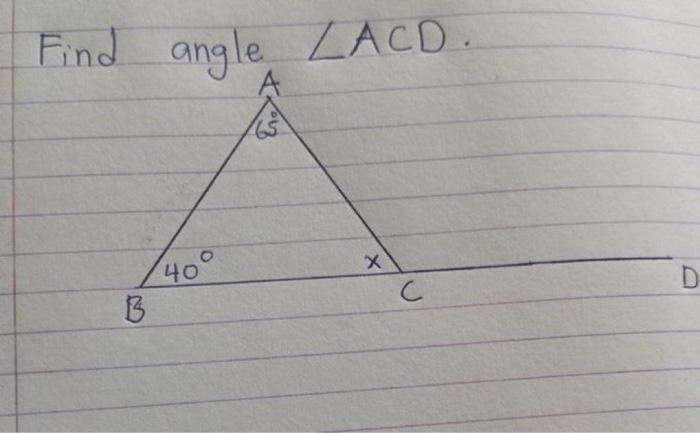 Find angle ∠ACD.
A
65°
40°
x
B
C
D